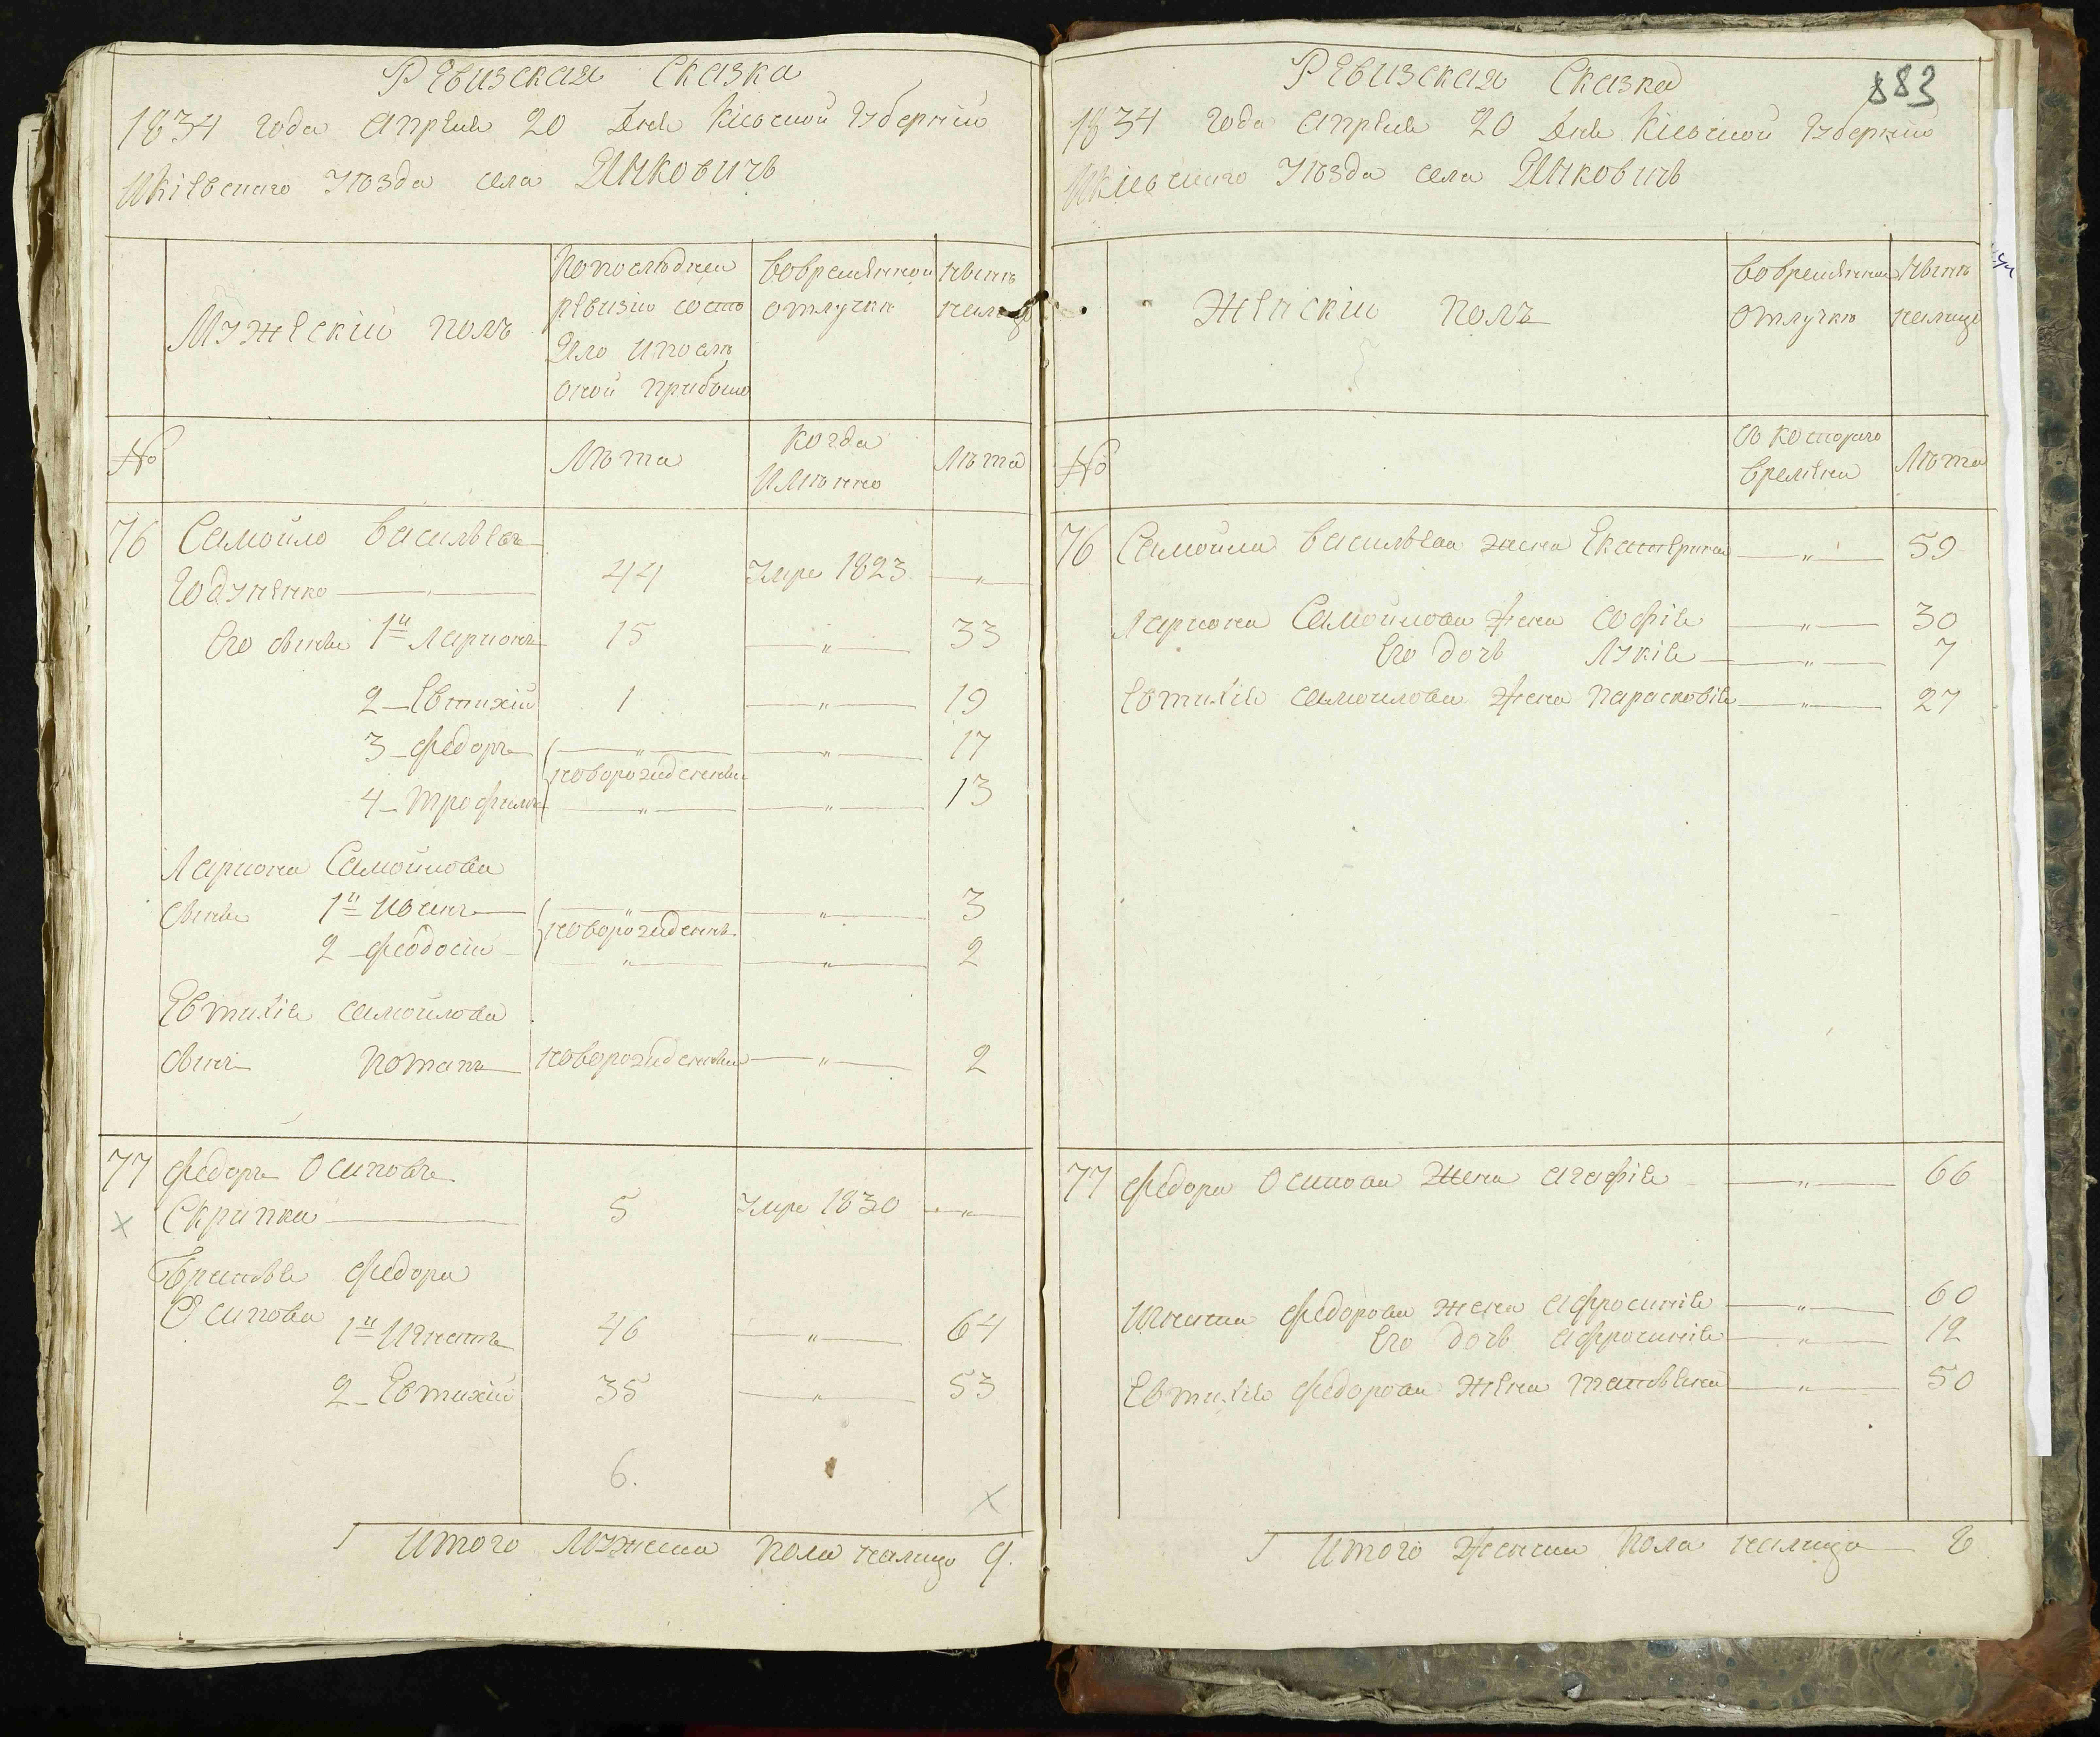 Ревизская Сказка
1834 года апреля 20 дня Кіевской Губерніи
и Кіевскаго уѣзда села Янковичъ
Мужескій полъ
По последней
ревизіи состо
яло и после
оной прибыло
Вовременной
отлучкѣ
Нынѣ
налицо
№
Лѣта
Когда
Именно
Лѣта
76 Самойло Васильевъ
Годуненко — 44 Умре 1823 — „ —
Его сынъя 1й Ларионъ 15 — „ — 33
2 — Евтихій 1 — „ — 19
3 — Федоръ — „ — — „ — 17
новорожденныи
4 — Трофимъ — „ — — „ — 13
Лариона Самойлова
сынъя 1й Иванъ — „ — — „ — 3
новорожденны
2 — Феодосій — „ — — „ — 2
Евтихія Самойлова
сынъ Потапъ новорожденныи — „ — 2
77 Федоръ Осиповъ
Скрипка — 5 Умре 1830 — „ —
Братья Федора
Осипова
1й Игнатъ 46 — „ — 64
2 — Евтихій 35 — „ — 53
6.
Итого Мужеска пола налицо 9.
883
Ревизская Сказка
1834 года апреля 20 дня Кіевской Губерніи
и Кіевскаго уѣзда села Янковичъ
Женскій полъ
Вовременной
отлучкѣ
Нынѣ
налицо
№
Съ котораго
времена
Лѣта
76 Самойла Васильева жена Екатерина — „ — 59
Лариона Самойлова жена Софія — „ — 30
Его дочь Лукія — „ — 7
Евтихія Самойлова жена Парасковія — „ — 27
77 Федора Осипова жена Агафія — „ — 66
Игната Федорова жена Афросинія — „ — 60
Его дочь Афросинія — „ — 12
Евтихія Федорова жена Татьяна — „ — 50
Итого женска пола налицо — 8